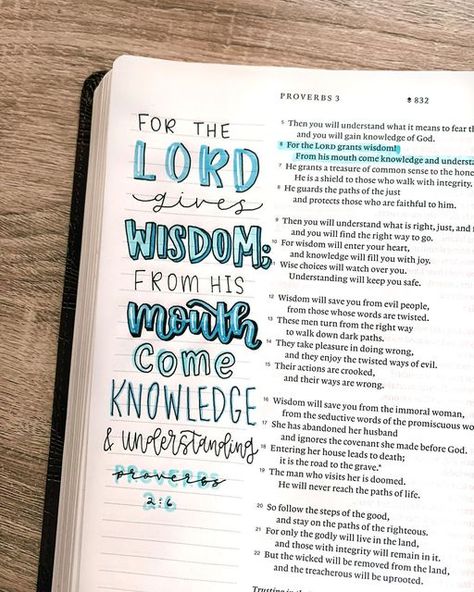 FOR THE
LORD
gives
WISDOM;
FROM HIS
mouth
come
KNOWLEDGE
& understanding
proverbs
2:6
PROVERBS 3 832
5 Then you will understand what it means to fear
and you will gain knowledge of God.
6 For the LORD grants wisdom!
From his mouth come knowledge and understa
7 He grants a treasure of common sense to the hone
He is a shield to those who walk with integrity.
8 He guards the paths of the just
and protects those who are faithful to him.
9 Then you will understand what is right, just, and
and you will find the right way to go.
10 For wisdom will enter your heart,
and knowledge will fill you with joy.
11 Wise choices will watch over you.
Understanding will keep you safe.
12 Wisdom will save you from evil people,
from those whose words are twisted.
13 These men turn from the right way
to walk down dark paths.
14 They take pleasure in doing wrong,
and they enjoy the twisted ways of evil.
15 Their actions are crooked,
and their ways are wrong.
16 Wisdom will save you from the immoral woman,
from the seductive words of the promiscuous
17 She has abandoned her husband
and ignores the covenant she made before God.
18 Entering her house leads to death;
it is the road to the grave.*
19 The man who visits her is doomed.
He will never reach the paths of life.
20 So follow the steps of the good,
and stay on the paths of the righteous.
21 For only the godly will live in the land,
and those with integrity will remain in it.
22 But the wicked will be removed from the land,
and the treacherous will be uprooted.
Trusting in the